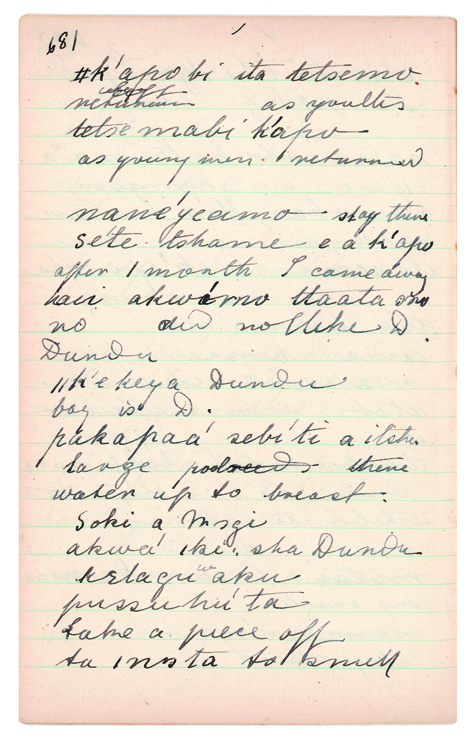 189
#k'apobi ita tetsemo
returned as youths
tetse mabi k'apo
as young men. returned
naneycamo stay there
séte tshame e a k'apo
after 1 month I came away
akwérno ttaata
no did not like D.
Dundu
//k'ekeya Dundu
boy is D.
pakapaá sebíti a itshe
large podreeds there
water up to breast.
Soki a Msgi
akwá iki, sha Dundu
kelagu aku
pussuhúta
take a piece off
ta insta to smell